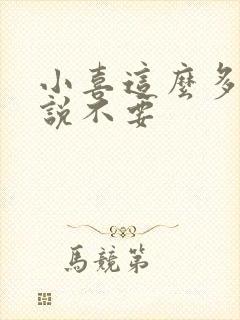 小喜這麼多
說不要
馬競第